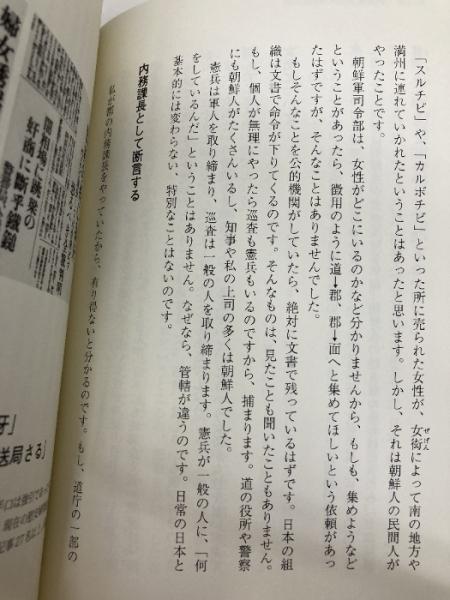 「スルチビ」や、「カルボチビ」といった所に売られた女性が、女衒によって南の地方や
ぜげん
満州に連れていかれたということはあったと思います。しかし、それは朝鮮人の民間人が
やったことです。
朝鮮軍司令部は、女性がどこにいるのかなど分かりませんから、もしも、集めようなど
ということがあったら、徴用のように道→郡、郡→面へと集めてほしいという依頼があっ
たはずですが、そんなことはありませんでした。
もしそんなことを公的機関がしていたら、絶対に文書で残っているはずです。日本の組
織は文書で命令が下りてくるのです。そんなものは、見たことも聞いたこともありません。
もし、個人が無理にやったら巡査も憲兵もいるのですから、捕まります。道の役所や警察
にも朝鮮人がたくさんいるし、知事や私の上司の多くは朝鮮人でした。
憲兵は軍人を取り締まり、巡査は一般の人を取り締まります。憲兵が一般の人に、「何
をしているんだ」ということはありません。なぜなら、管轄が違うのです。日常の日本と
基本的には変わらない、特別なことはないのです。
内務課長として断言する
私が郡の内務課長をやっていたから、有り得ないと分かるのです。もし、道庁の一部の
奸商に断乎鐵鎚
婦女誘
牙」
送局さる」